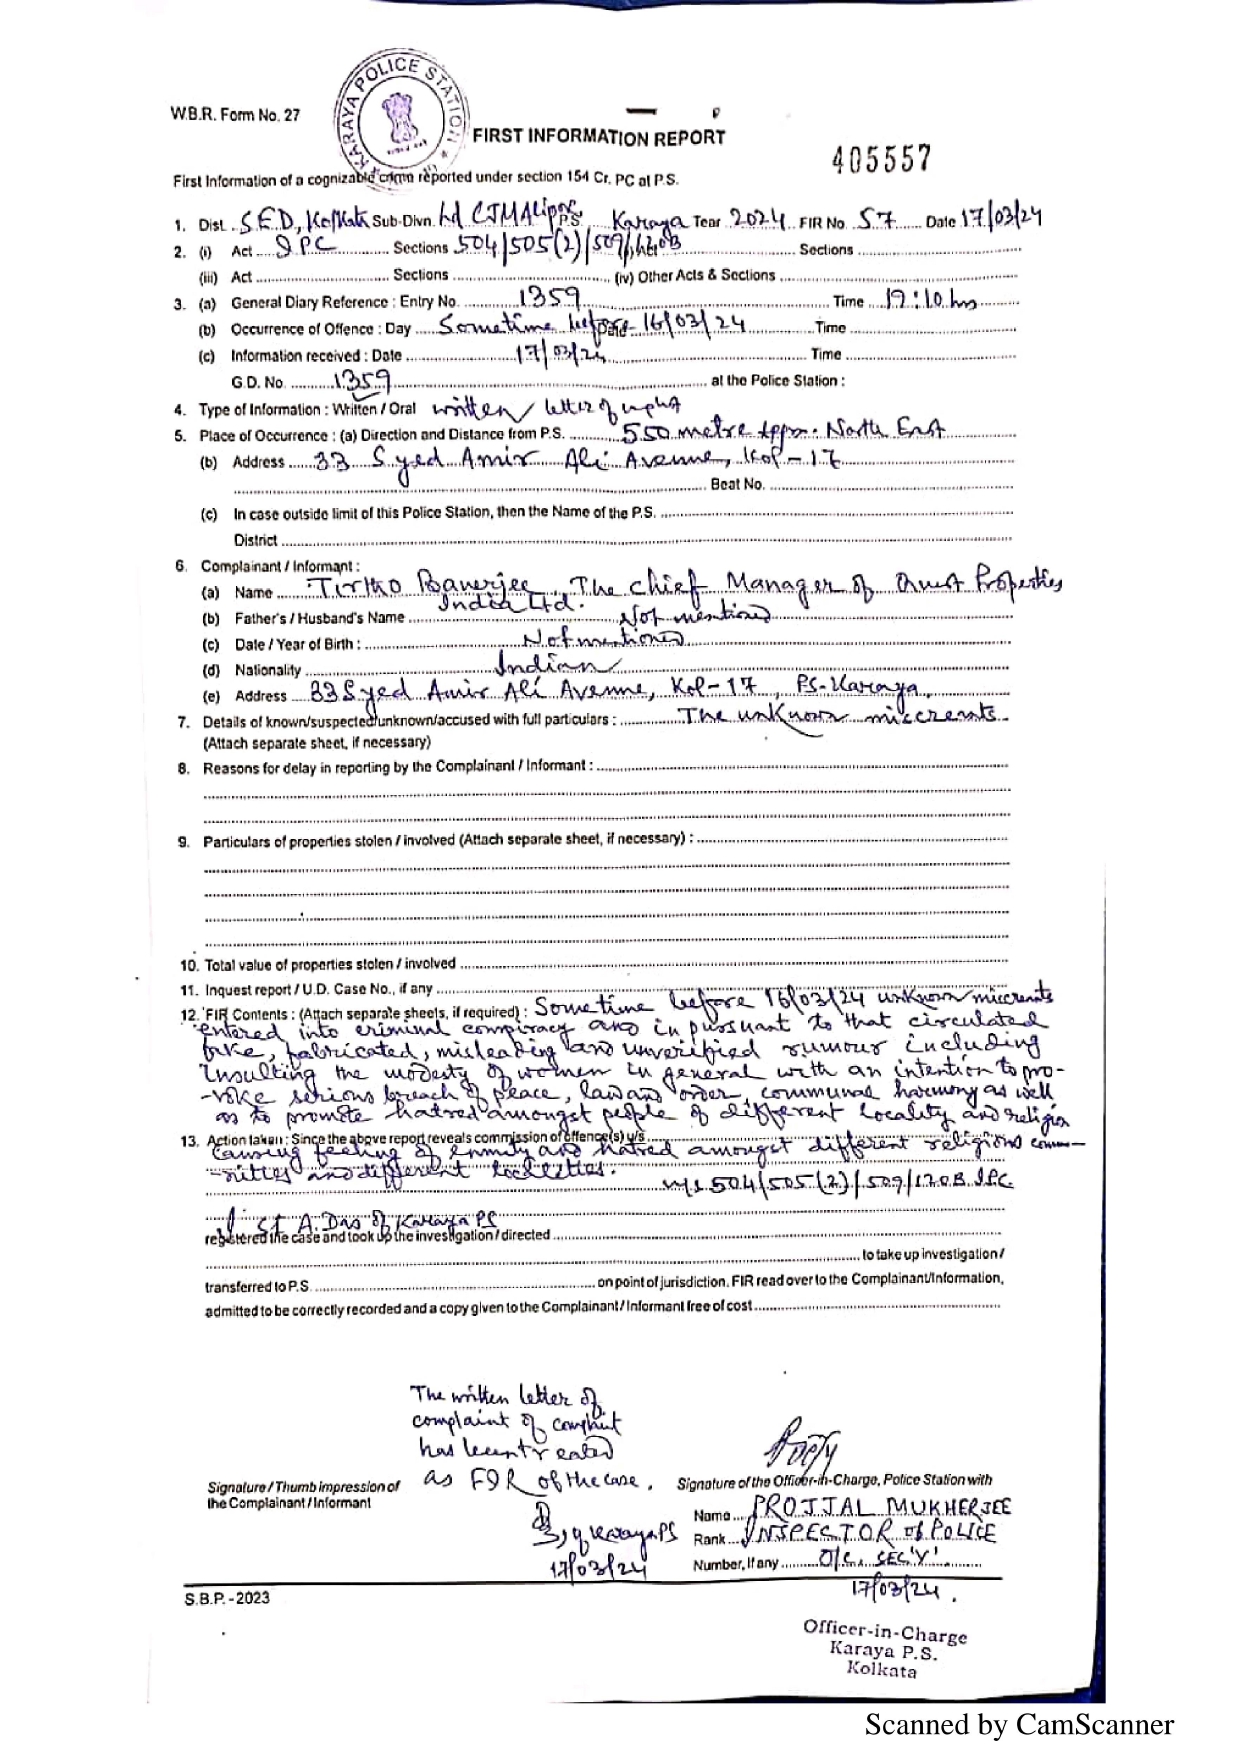 KARAYA POLICE STATION
W.B.R. Form No. 27
FIRST INFORMATION REPORT
405557
First Information of a cognizable crime reported under section 154 Cr. PC at P.S.
1. Dist. S.E.D, Kolkata Sub-Divn. Ld CJM Alipore P.S. Karaya Year 2024 FIR No. 57 Date 17/03/24
2. (i) Act IPC Sections 504/505(2)/509/120B Sections
(iii) Act Sections (iv) Other Acts & Sections
3. (a) General Diary Reference : Entry No. 1359 Time 19:10 hrs
(b) Occurrence of Offence : Day Sometime before 16/03/24 Time
(c) Information received : Date 17/03/24 Time
G.D. No. 1359 at the Police Station :
4. Type of Information : Written / Oral written letter of
5. Place of Occurrence : (a) Direction and Distance from P.S. 550 metre appx. North East
(b) Address 33 Syed Amir Ali Avenue, Kol-17
Beat No.
(c) In case outside limit of this Police Station, then the Name of the P.S.
District
6. Complainant / Informant :
(a) Name Tirtho Banerjee, The Chief Manager of Properties
India Ltd.
(b) Father's / Husband's Name Not mentioned
(c) Date / Year of Birth : Not mentioned
(d) Nationality Indian
(e) Address 33 Syed Amir Ali Avenue, Kol-17, PS-Karaya,
7. Details of known/suspected/unknown/accused with full particulars : The unknown miccrents
(Attach separate sheet, if necessary)
8. Reasons for delay in reporting by the Complainant / Informant :
9. Particulars of properties stolen / involved (Attach separate sheet, if necessary) :
10. Total value of properties stolen / involved
11. Inquest report / U.D. Case No., if any
12. FIR Contents : (Attach separate sheets, if required) : Sometime before 16/03/24 unknown miccrents
entered into criminal conspiracy and in pursuant to that circulated
fake, fabricated, misleading and unverified rumour including
insulting the modesty of women in general with an intention to pro-
-voke serious breach of peace, law and order, communal harmony as well
as to promote hatred amongst people of different locality and religion
13. Action taken : Since the above report reveals commission of offence(s) u/s
causing feeling of enmity and hatred amongst different religions commu-
-nities and different localities.
u/s 504/505(2)/509/120B IPC
SI A. Das of Karaya PS
registered the case and took up the investigation / directed
to take up investigation /
transferred to P.S. on point of jurisdiction. FIR read over to the Complainant/Information,
admitted to be correctly recorded and a copy given to the Complainant / Informant free of cost
The written letter of
complaint of
has been treated
as FIR of the case.
Signature / Thumb impression of
the Complainant / Informant
Karaya PS
17/03/24
Signature of the Officer-in-Charge, Police Station with
Name PROJJAL MUKHERJEE
Rank INSPECTOR of POLICE
Number, If any O/C, SEC 'Y'
17/03/24.
S.B.P. -2023
Officer-in-Charge
Karaya P.S.
Kolkata
Scanned by CamScanner